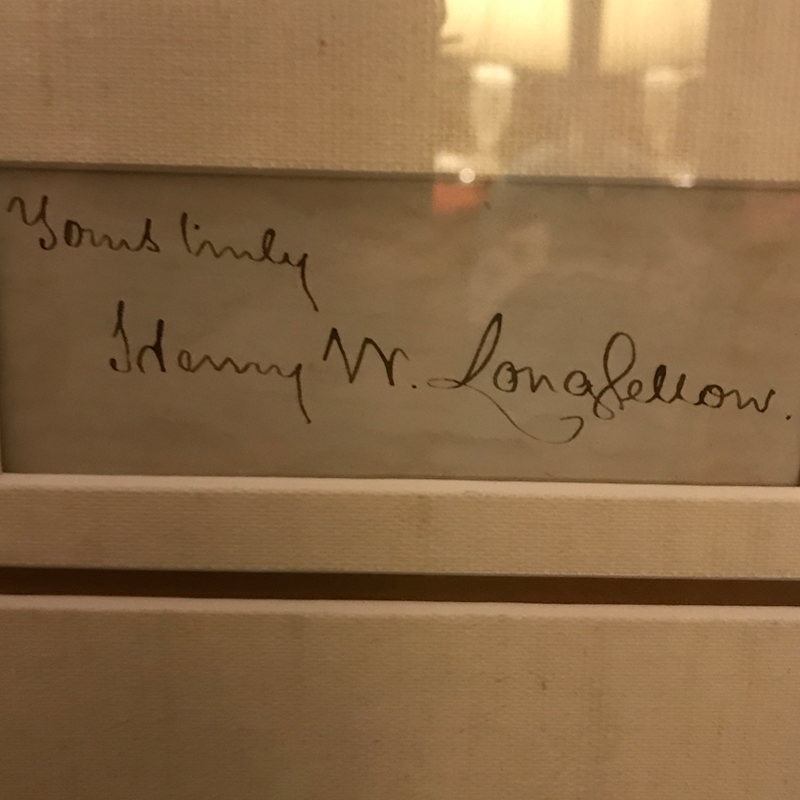 Yours truly
Henry W. Longfellow.